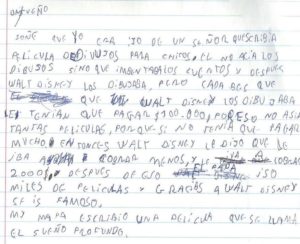 UN SUEÑO
SOÑE QUE YO ERA IJO DE UN SEÑOR QUESCRIBIA
PELICULA DE DIVUJOS PARA CHICOS, EL NO ACIA LOS
DIBUJOS SINO QUE INBENTABALOS CUENTOS Y DESPUES
WALT DISNEY LOS DIBUJABA, PERO CADA BES QUE
QUE WALT DISNEY LOS DIBUJABA
LE TENIAN QUE PAGAR $100.000, POR ESO NO ASIA
TANTAS PELICULAS, PORQUE SI NO TENIA QUE PAGAR
MUCHO, ENTONCES WALT DISNEY LE DIJO QUE
IBA A COBRAR MENOS, Y LE COBRABA
2000$, DESPUES DE ESO ISO
MILES DE PELICULAS Y GRACIAS A WALT DISNEY
SE IS FAMOSO.
MY PAPA ESCRIBIO UNA PELICULA QUE SE LLAMA
EL SUEÑO PROFUNDO.